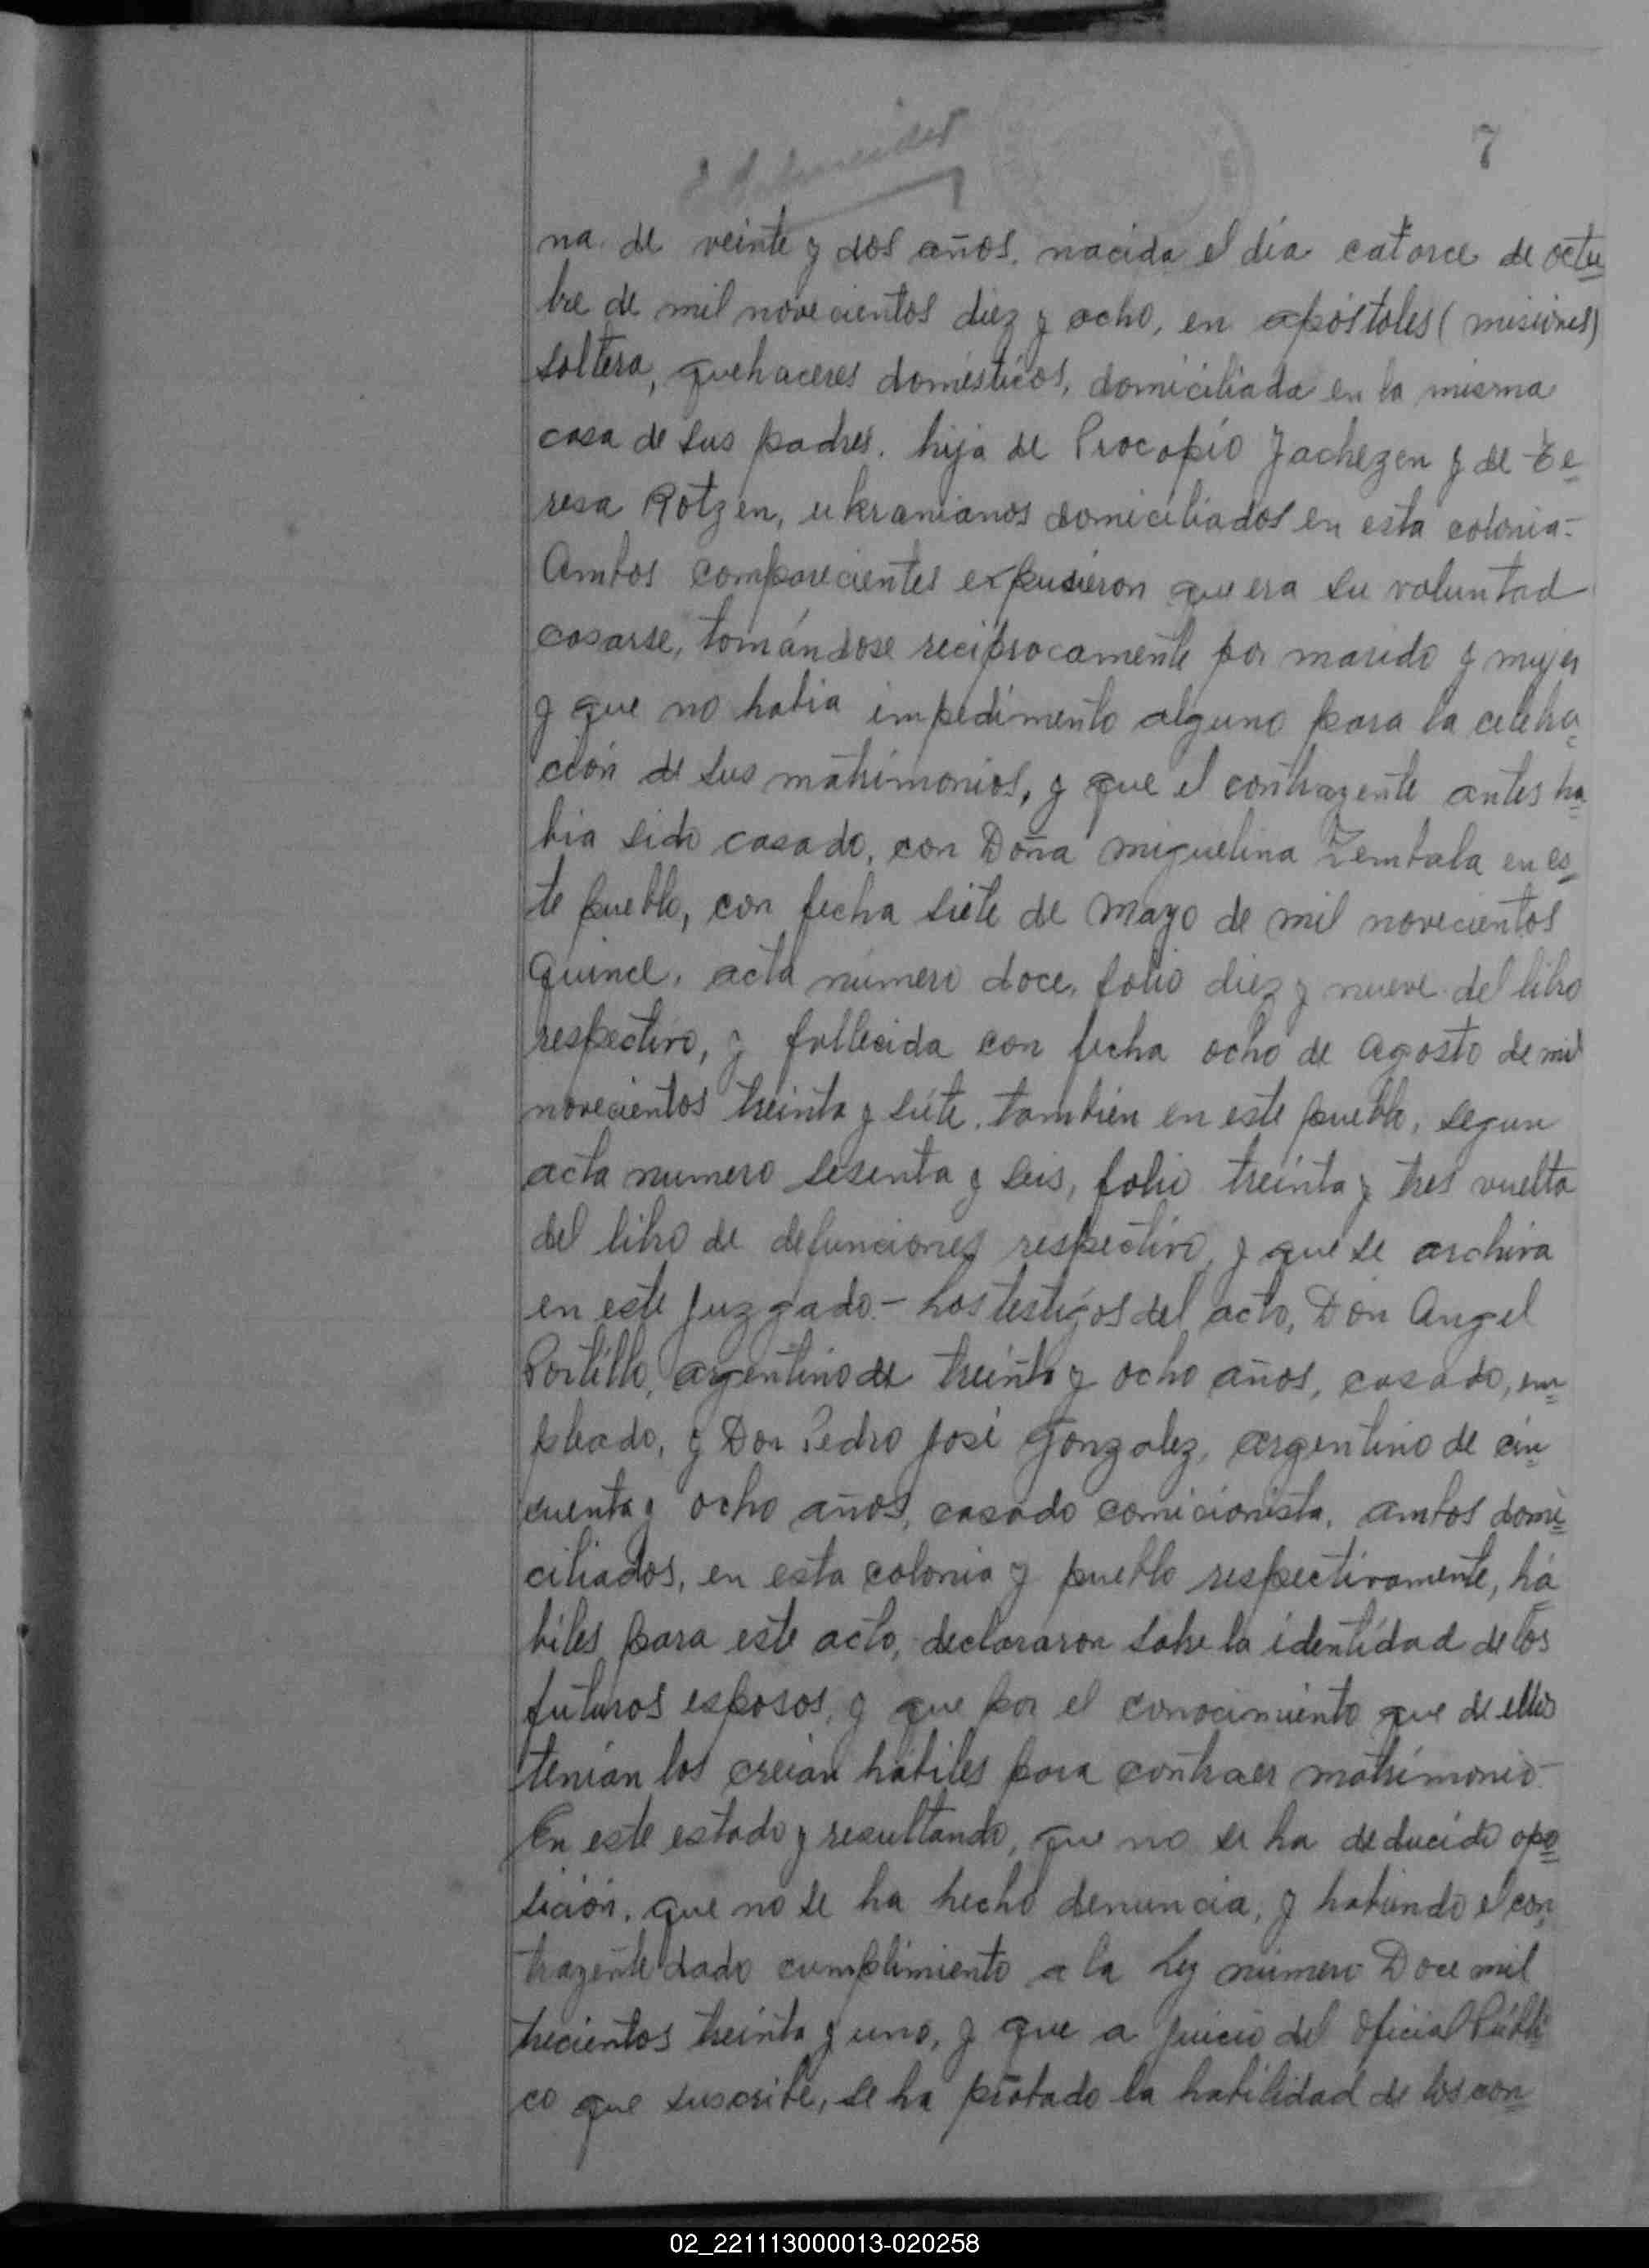 7
na. de veinte y dos años. nacida el día catorce de octu
bre de mil novecientos diez y ocho, en apóstoles (misiones)
soltera, quehaceres domésticos, domiciliada en la misma
casa de sus padres. hija de Procopio Jachezen y de Te
resa Rotzen, ukranianos domiciliados en esta colonia-
Ambos comparecientes expusieron que era su voluntad
casarse, tomándose recíprocamente por marido y mujer
y que no habia impedimento alguno para la celebra
ción de sus matrimonios, y que el contrayente antes ha
bia sido casado, con Doña Miguelina Zembala en es
te pueblo, con fecha siete de Mayo de mil novecientos
quince, acta número doce, folio diez y nueve del libro
respectivo, y fallecida con fecha ocho de Agosto de mil
novecientos treinta y siete, también en este pueblo, segun
acta numero sesenta y seis, folio treinta y tres vuelta
del libro de defunciones respectivo, y que se archiva
en este Juzgado.- Los testigos del acto, Don Angel
Portillo, argentino de treinta y ocho años, casado, em
pleado, y Don Pedro José Gonzalez, argentino de cin
cuenta y ocho años, casado comicionista, ambos domi
ciliados, en esta colonia y pueblo respectivamente, há
biles para este acto, declararon sobre la identidad de los
futuros esposos, y que por el conocimiento que de ellos
tenian los creian hábiles para contraer matrimonio-
En este estado y resultando, que no se ha deducido opo
sición, que no se ha hecho denuncia, y habiendo el con
trayente dado cumplimiento a la Ley número Doce mil
trecientos treinta y uno, y que a juicio del Oficial Públi
co que suscribe, se ha probado la habilidad de los con
02_221113000013-020258